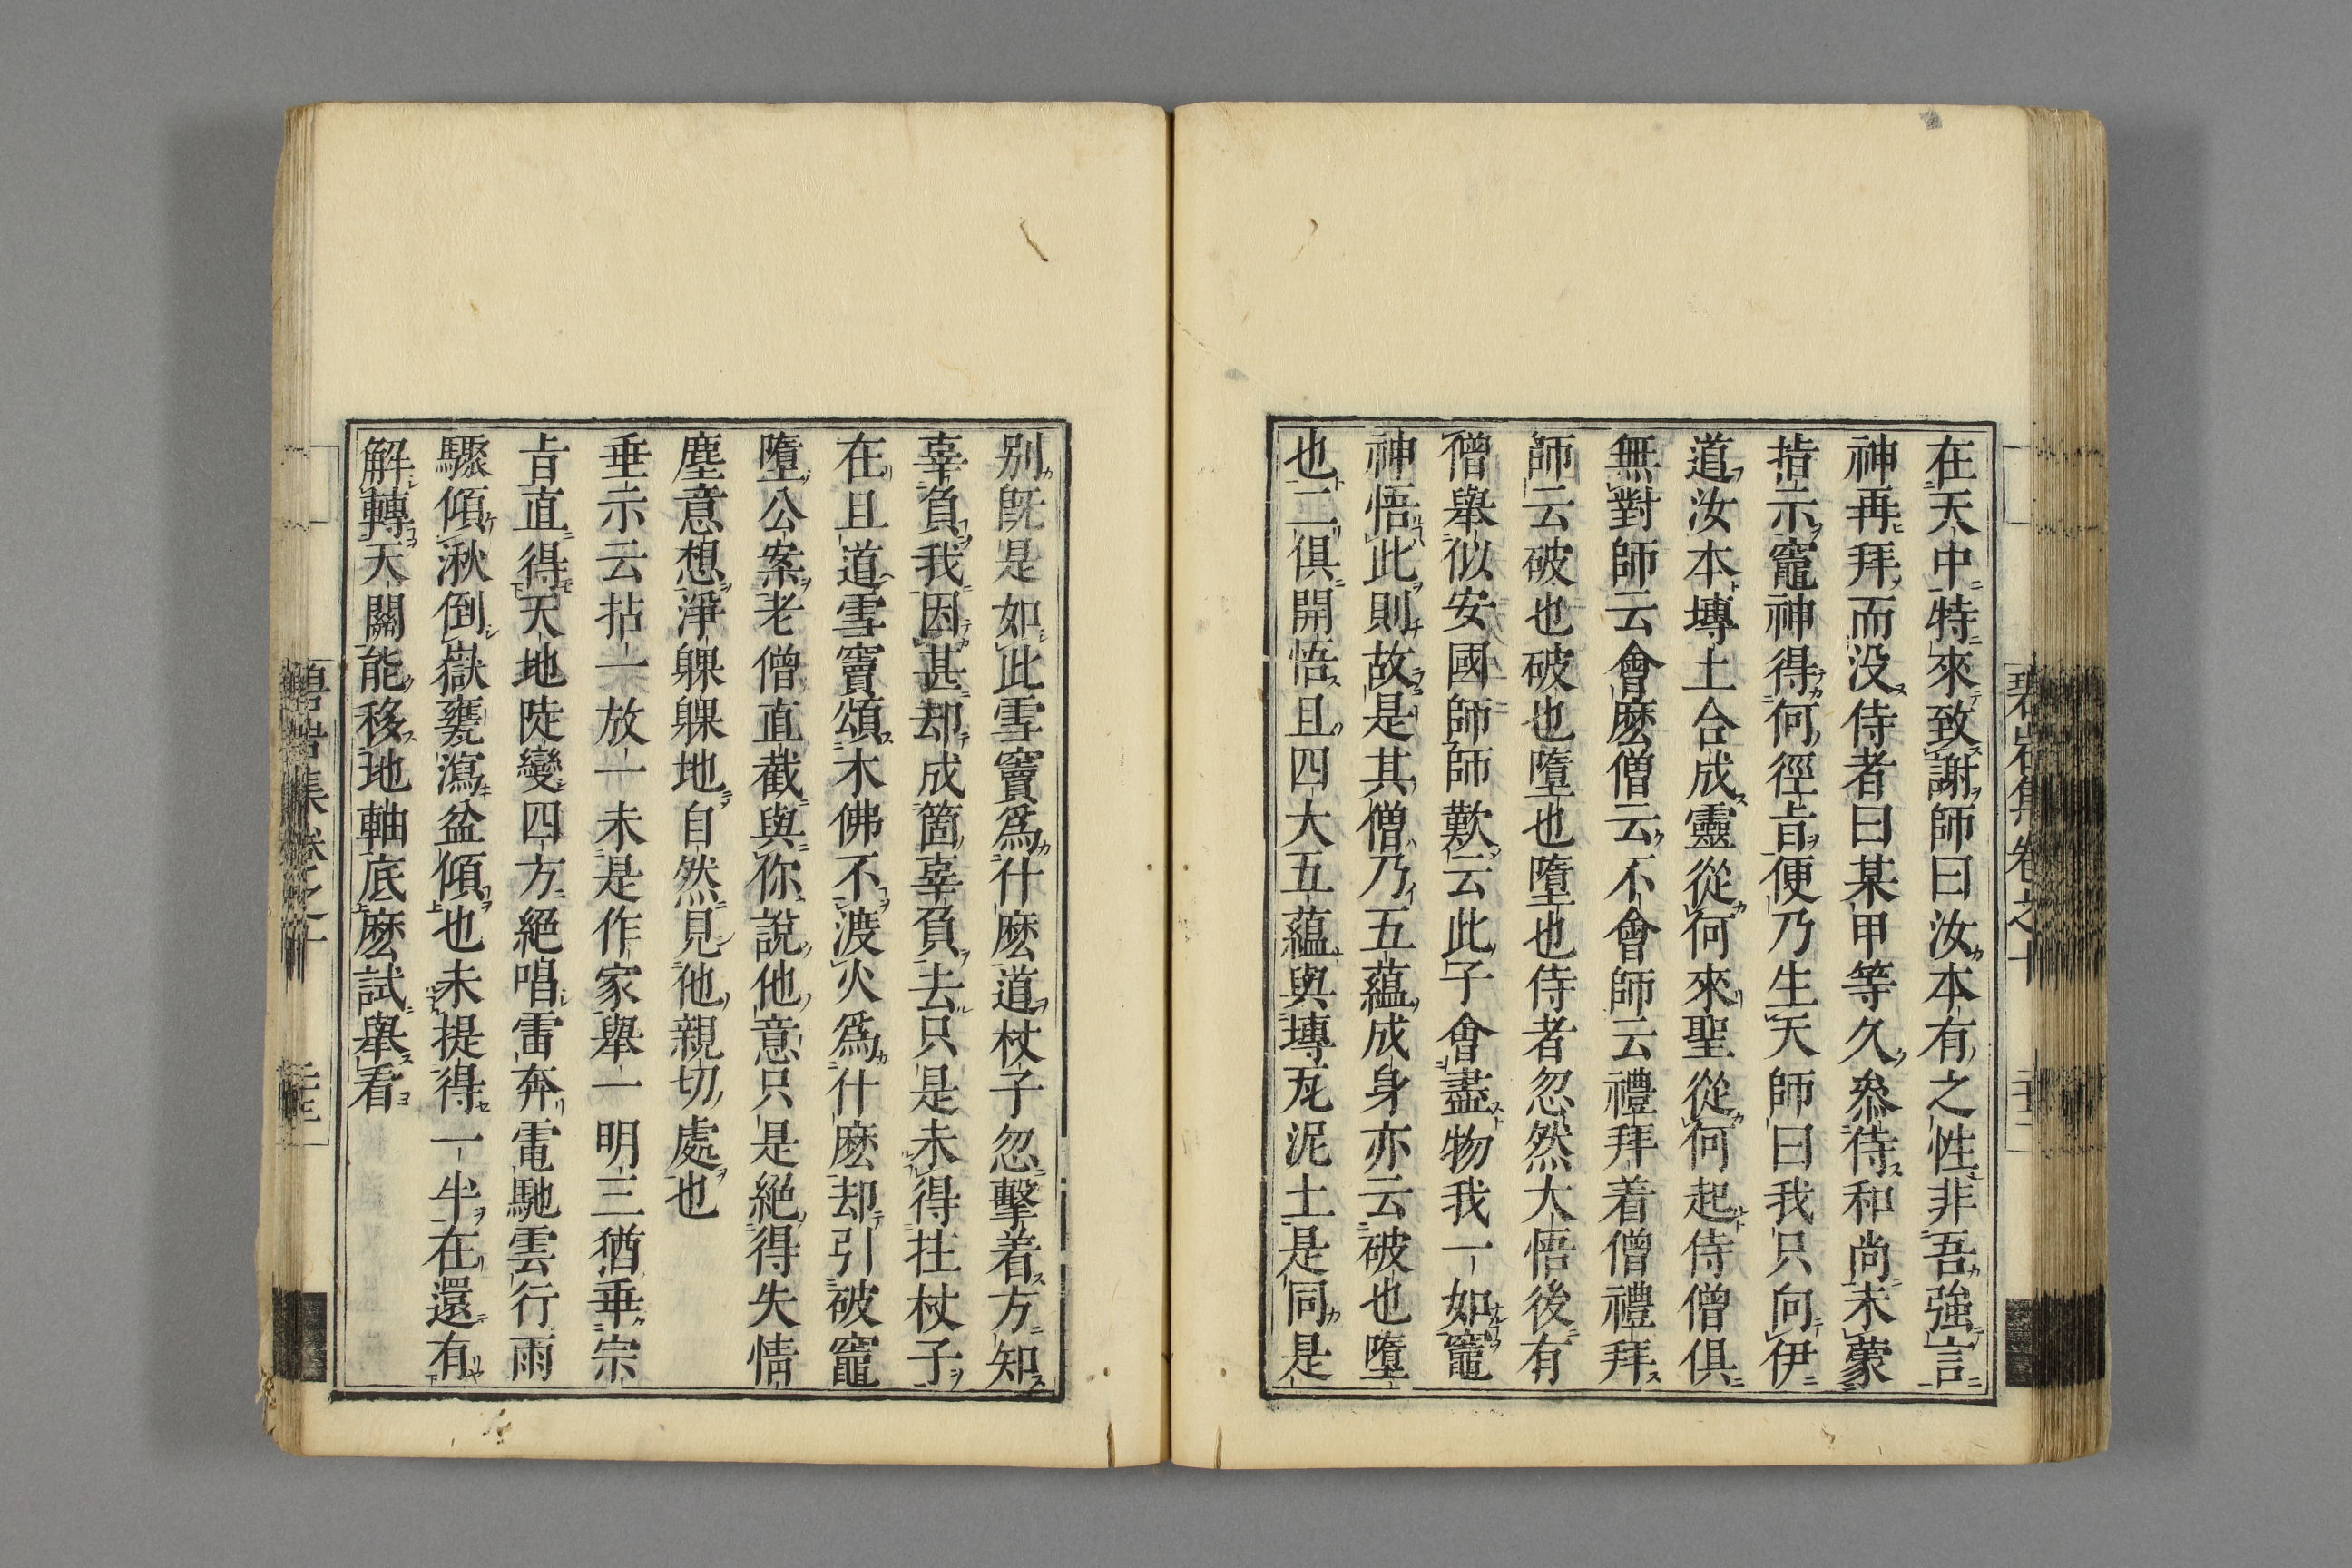 在天中特來致謝師曰汝本有之性非吾強言
神再拜而没侍者曰某甲等久叅侍和尚未蒙
指示竈神得何徑旨便乃生天師曰我只向伊
道汝本塼土合成靈從何來聖從何起侍僧俱
無對師云會麽僧云不會師云禮拜着僧禮拜
師云破也破也墮也墮也侍者忽然大悟後有
僧舉似安國師師歎云此子會盡物我一如竈
神悟此則故是其僧乃五蘊成身亦云破也墮
也二俱開悟且四大五蘊與塼瓦泥土是同是
別既是如此雪竇爲什麽道杖子忽擊着方知
辜負我因甚却成箇辜負去只是未得拄杖子
在且道雪竇頌木佛不渡火爲什麽却引破竈
墮公案老僧直截與你說他意只是絕得失情
塵意想淨躶躶地自然見他親切處也
垂示云拈一放一未是作家舉一明三猶乖宗
旨直得天地陡變四方絕唱雷奔電馳雲行雨
驟傾湫倒嶽甕瀉盆傾也未提得一半在還有
解轉天關能移地軸底麽試舉看
碧岩集卷之十